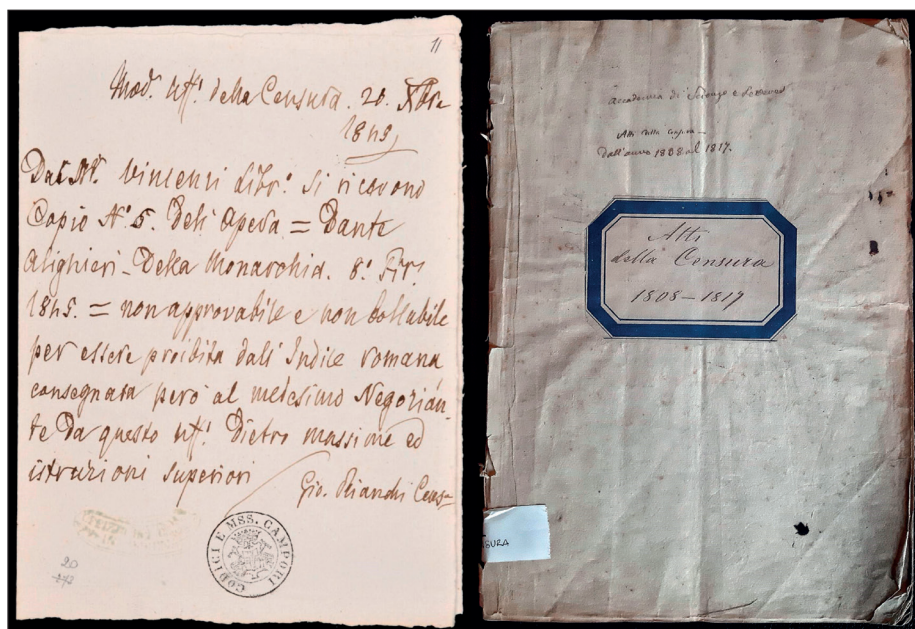 11
Mod. Uff.º della Censura. 20. Xbre
1845
Dal Sr. Vincenzi Libr.º si ricevono
Copie Nº 5. dell' Opera = Dante
Alighieri - Della Monarchia. 8.º
1845. = non approvabile e non bollabile
per essere proibita dall' Indice romana
consegnata però al medesimo Negozian-
te da questo Uff.º Dietro massime ed
istruzioni superiori
Gio. Bianchi Cens.
CODICI E MSS. CAMPORI
20
accademia di Scienze e Lettere
Atti della Censura
Dall'anno 1808 al 1817.
Atti
della Censura
1808 – 1817
SURA